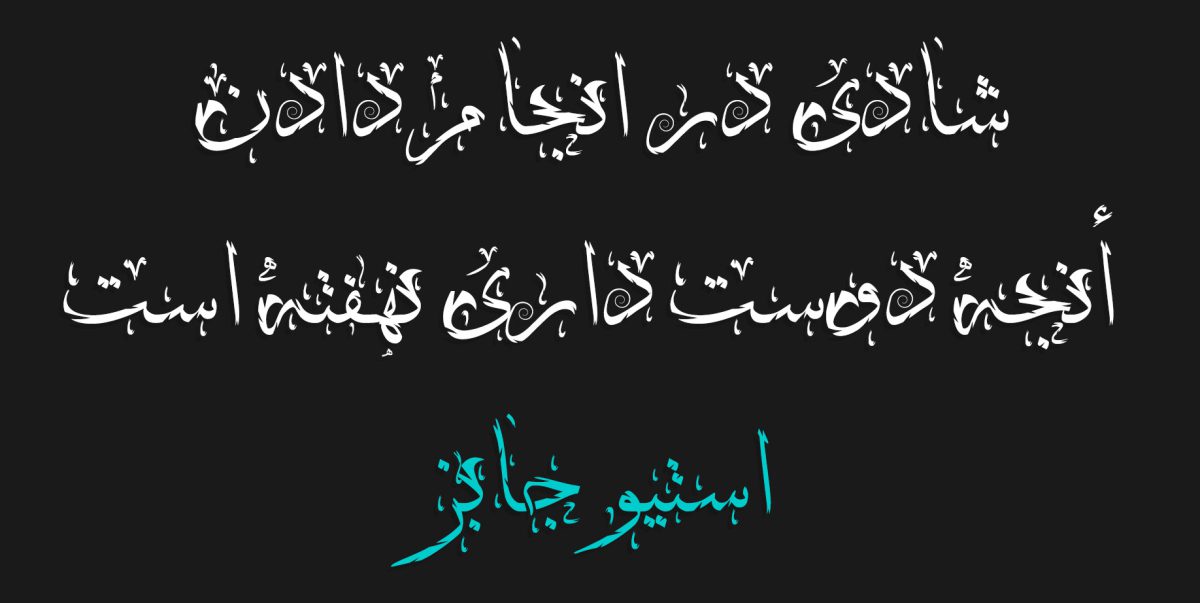 شادی در انجام دادن
أنچه دوست داری نهفته است
استیو جابز